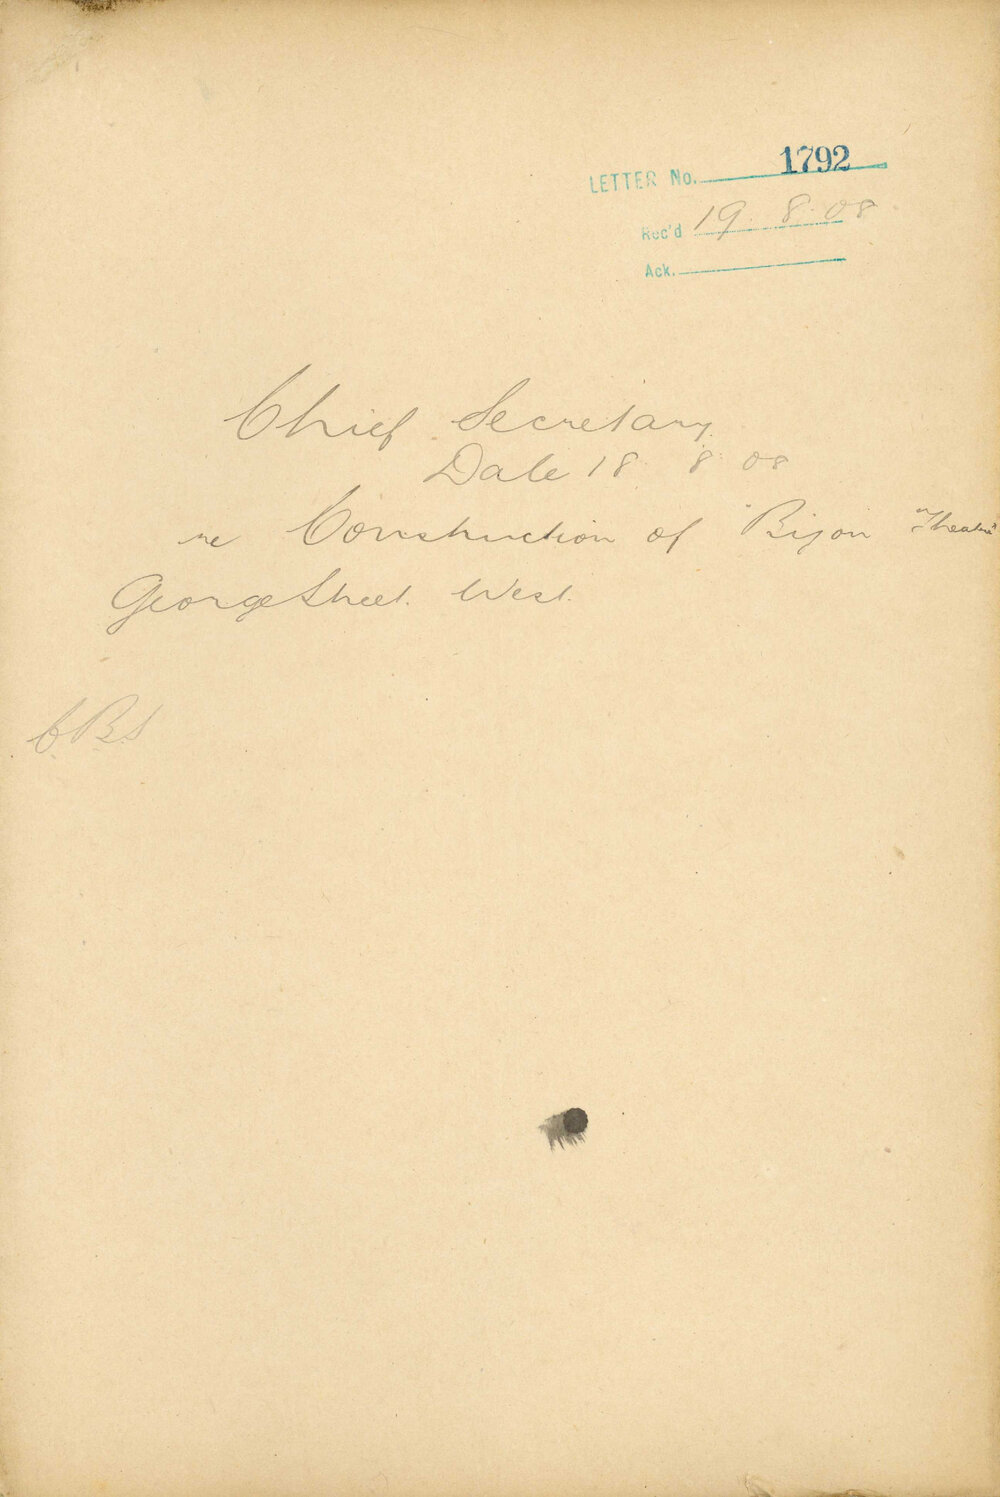 LETTER No. 1792
Rec'd 19 8 08
Ack.
Chief Secretary
Date 18 8 08
re Construction of "Bijou "Theatre"
George Street West.
CBS